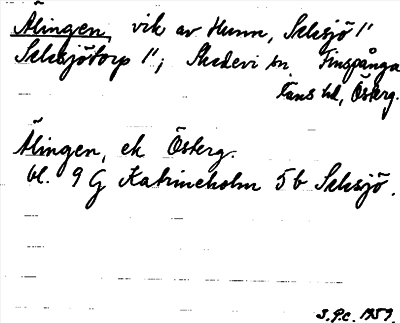 Ålingen, vik av Hunn, Selsjö 1/1
Selsjötorp 1/1; Skedevi sn Finspånga
läns hd, Österg.
Ålingen, ek Österg.
bl. 9 G Katrineholm 5b Selsjö.
S.P.c. 1959.